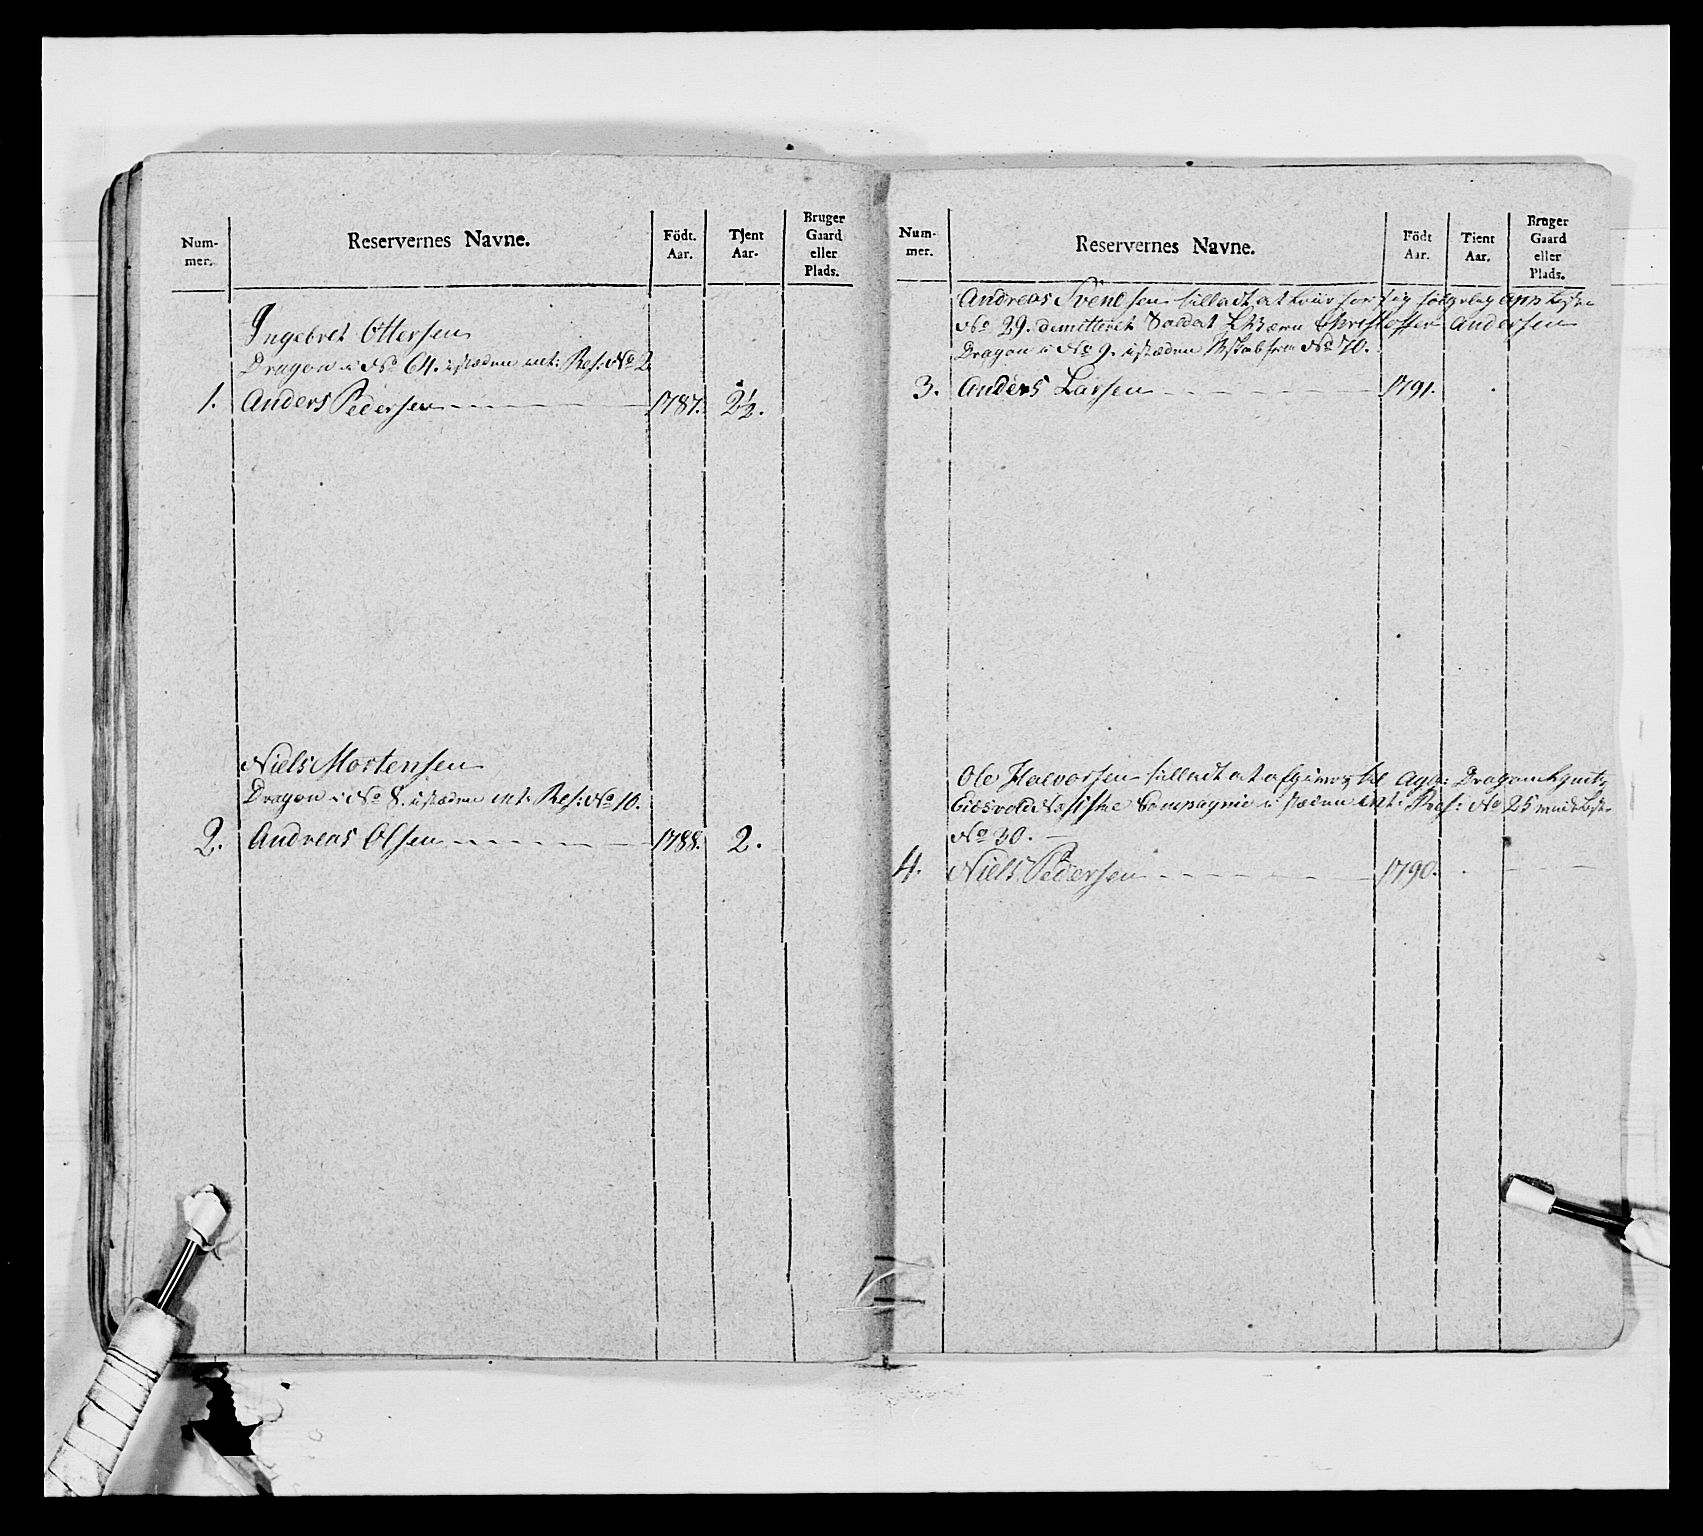 Num-
mer.
Reservernes Navne.
Födt.
Aar.
Tjent
Aar.
Bruger
Gaard
eller
Plads.
Ingebret Ottersen
Dragon i No 64. istæden ent: Res: No 2
1. Anders Pedersen 1787. 2½.
Niels Mortensen
Dragon i No 8. istæden ent: Res: No 10.
2. Andreas Olsen 1788. 2.
Num-
mer.
Reservernes Navne.
Födt
Aar.
Tient
Aar.
Bruger
Gaard
eller
Plads.
Andreas Svendsen tilladt at for sig
No 29. demitteret Soldat Christoffer Andersen
Dragon i No 9. istæden fra No 70.
3. Anders Larsen 1791.
Ole Halvorsen tilladt at afgives til Dragon
Eidsvold Compagnie i stæden ent: Res: No 25
No 30.
4. Niels Pedersen 1790.